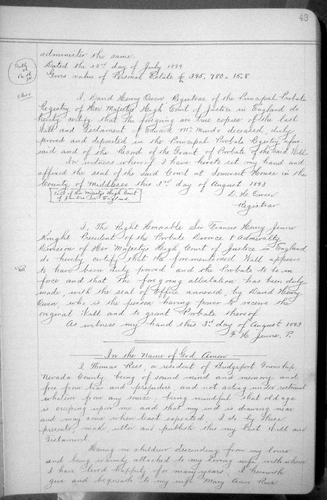 43
administer the same.
Dated the day of July 1893
Gross value of Personal Estate £ 395,780 - 15.8
I David Henry Owen Registrar of the Principal Probate
Registry of Her Majesty's High Court of Justice in England do
hereby certify that the foregoing are true copies of the last
Will and Testament of Edward Mc Murdo deceased, duly
proved and deposited in the Principal Probate Registry afore
said and of the Record of the Grant of Probate of the said Will.
In witness whereof I have hereto set my hand and
affixed the seal of the said Court at Somerset House in the
County of Middlesex this day of August 1893
D. H. Owen
Registrar
I, The Right Honorable Sir Francis Henry Jeune
Knight President of the Probate Divorce & Admiralty
Division of Her Majesty's High Court of Justice in England
do hereby certify that the forementioned Will appears
to have been duly proved and the Probate to be in
force and that the foregoing attestation has been duly
made, with the seal of Office annexed by David Henry
Owen who is the person having power to receive the
original Will and to grant Probate thereof
As witness my hand this 3d day of August 1893
F. H. Jeune, P.
In the Name of God Amen
I Thomas Rees, a resident of Bridgeport Township
Nevada County being of sound mind and memory and
free from fear and prejudice and not acting under restraint
whatever from any source, being mindful that old age
is creeping upon me and that my end is drawing near
and may come when least expected, I do by these
presents, make, utter and publish this my last Will and
Testament.
Having no children descending from my loins
and being warmly attached to my loving wife with whom
I have lived happily for many years, I herewith
give and bequeath to my wife Mary Ann Rees